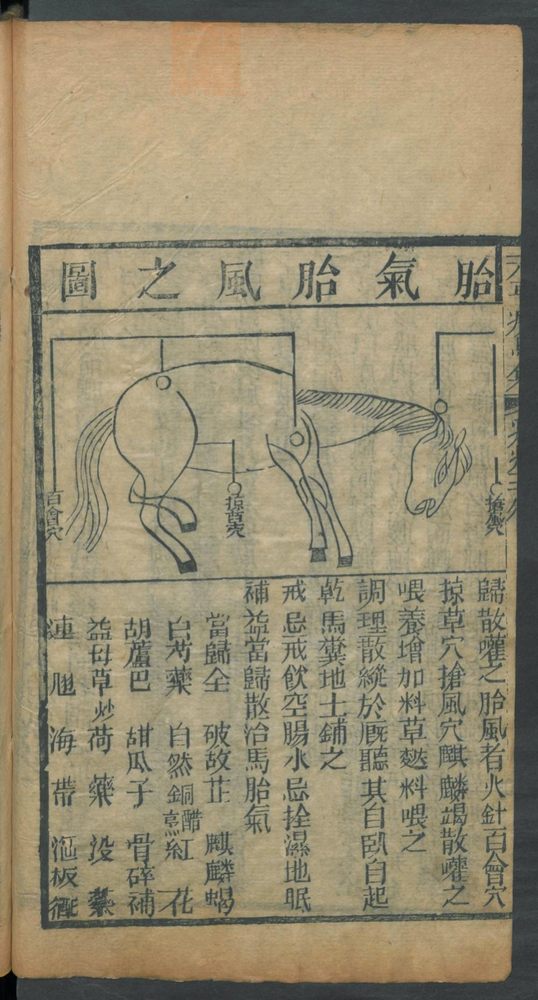 胎氣胎風之圖
百會穴
掠草穴
搶風穴
歸散嚾之胎風者火針百會穴
掠草穴搶風穴麒麟竭散嚾之
喂養增加料草麩料喂之
調理散縱於厩聽其自卧自起
乾馬糞地上鋪之
戒忌戒飲空腸水忌拴濕地眠
補益當歸散治馬胎氣
當歸全 破故芷 麒麟蝎
白芍藥 自然銅醋 紅花
胡蘆巴 甜瓜子 骨碎補
益母草炒 荷藥 沒藥
連翹 海帶 漚板